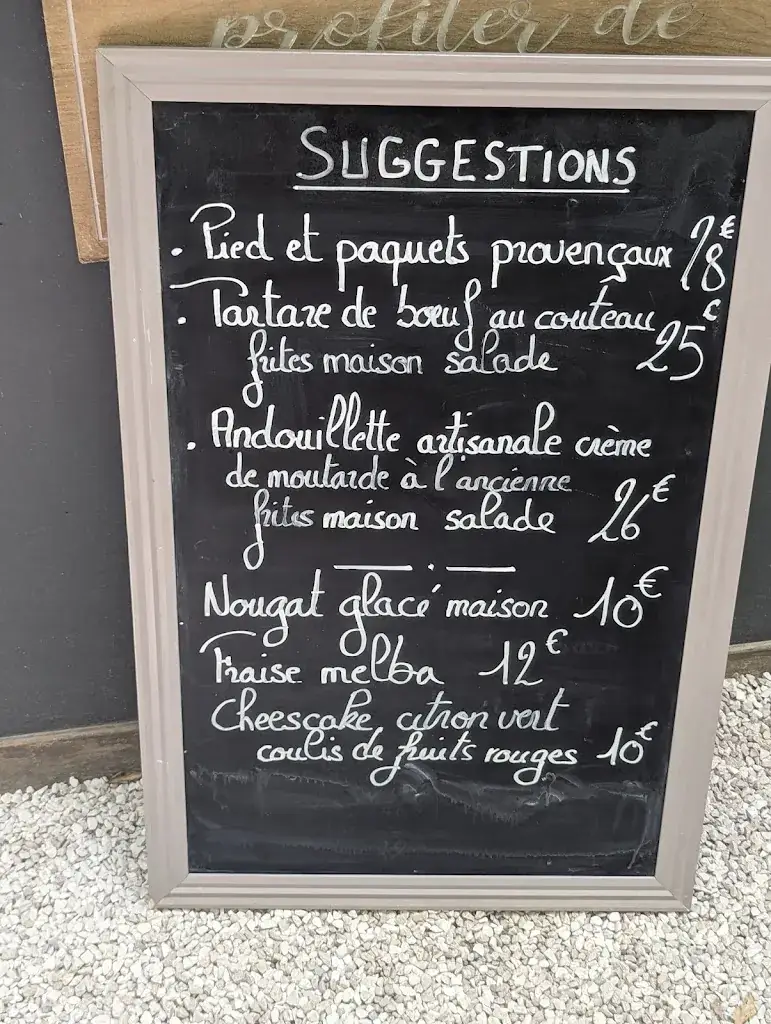 profiter de
SUGGESTIONS
. Pied et paquets provençaux 28€
. Tartare de boeuf au couteau
frites maison salade 25€
. Andouillette artisanale crème
de moutarde à l'ancienne
frites maison salade 26€
Nougat glacé maison 10€
Fraise melba 12€
Cheescake citron vert
coulis de fruits rouges 10€